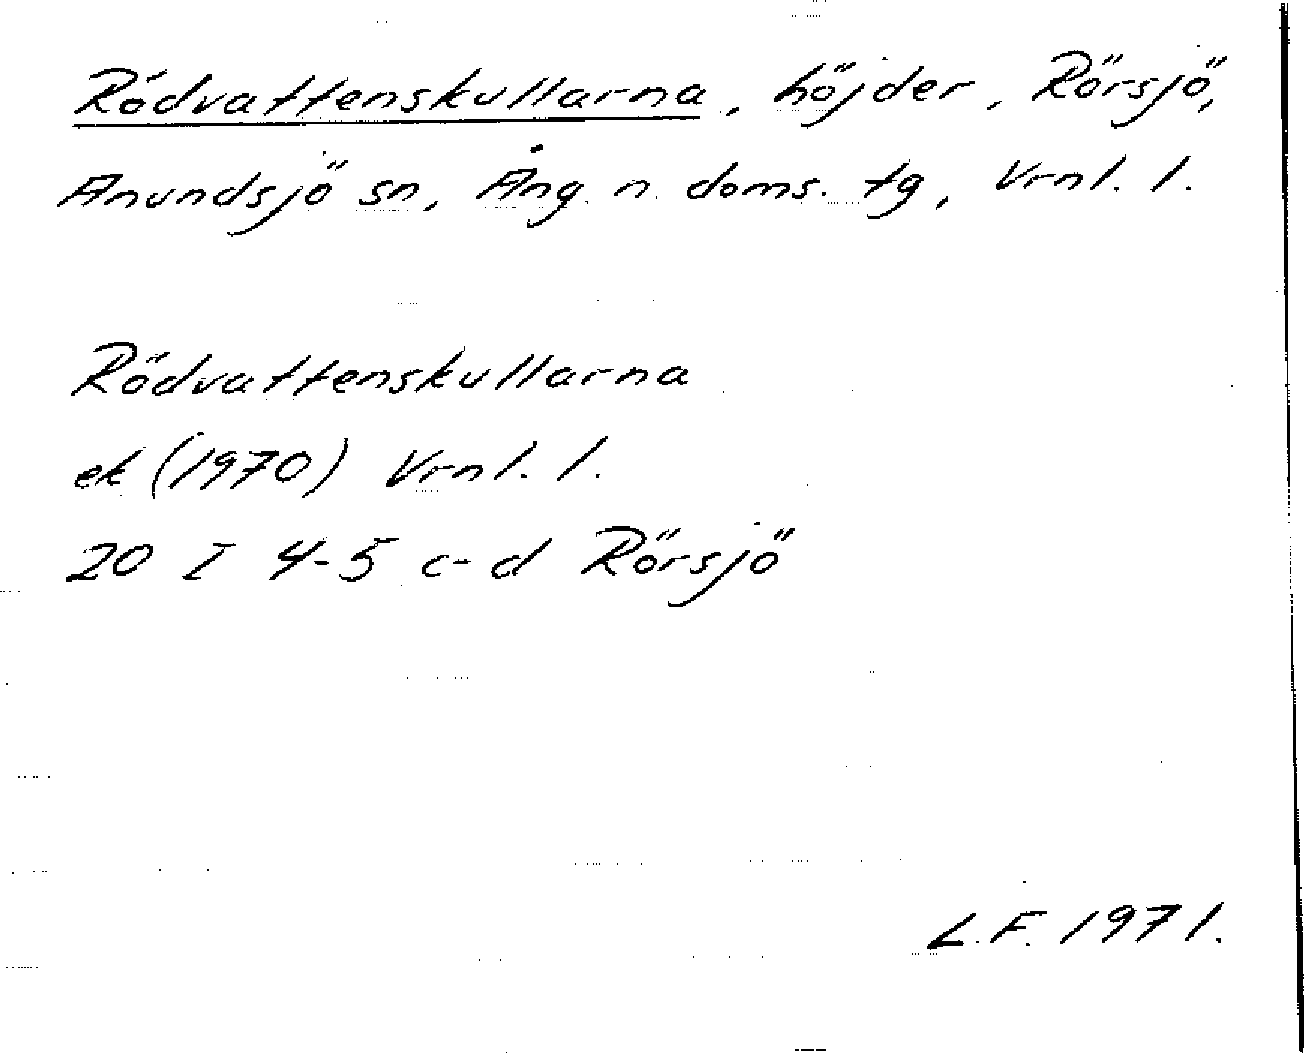 Rödvattenskullarna, höjder, Rörsjö,
Anundsjö sn, Ång. n. doms. tg, Vrnl. l.
Rödvattenskullarna
ek (1970) Vrnl. l.
20 I 4-5 c-d Rörsjö
L.F. 1971.